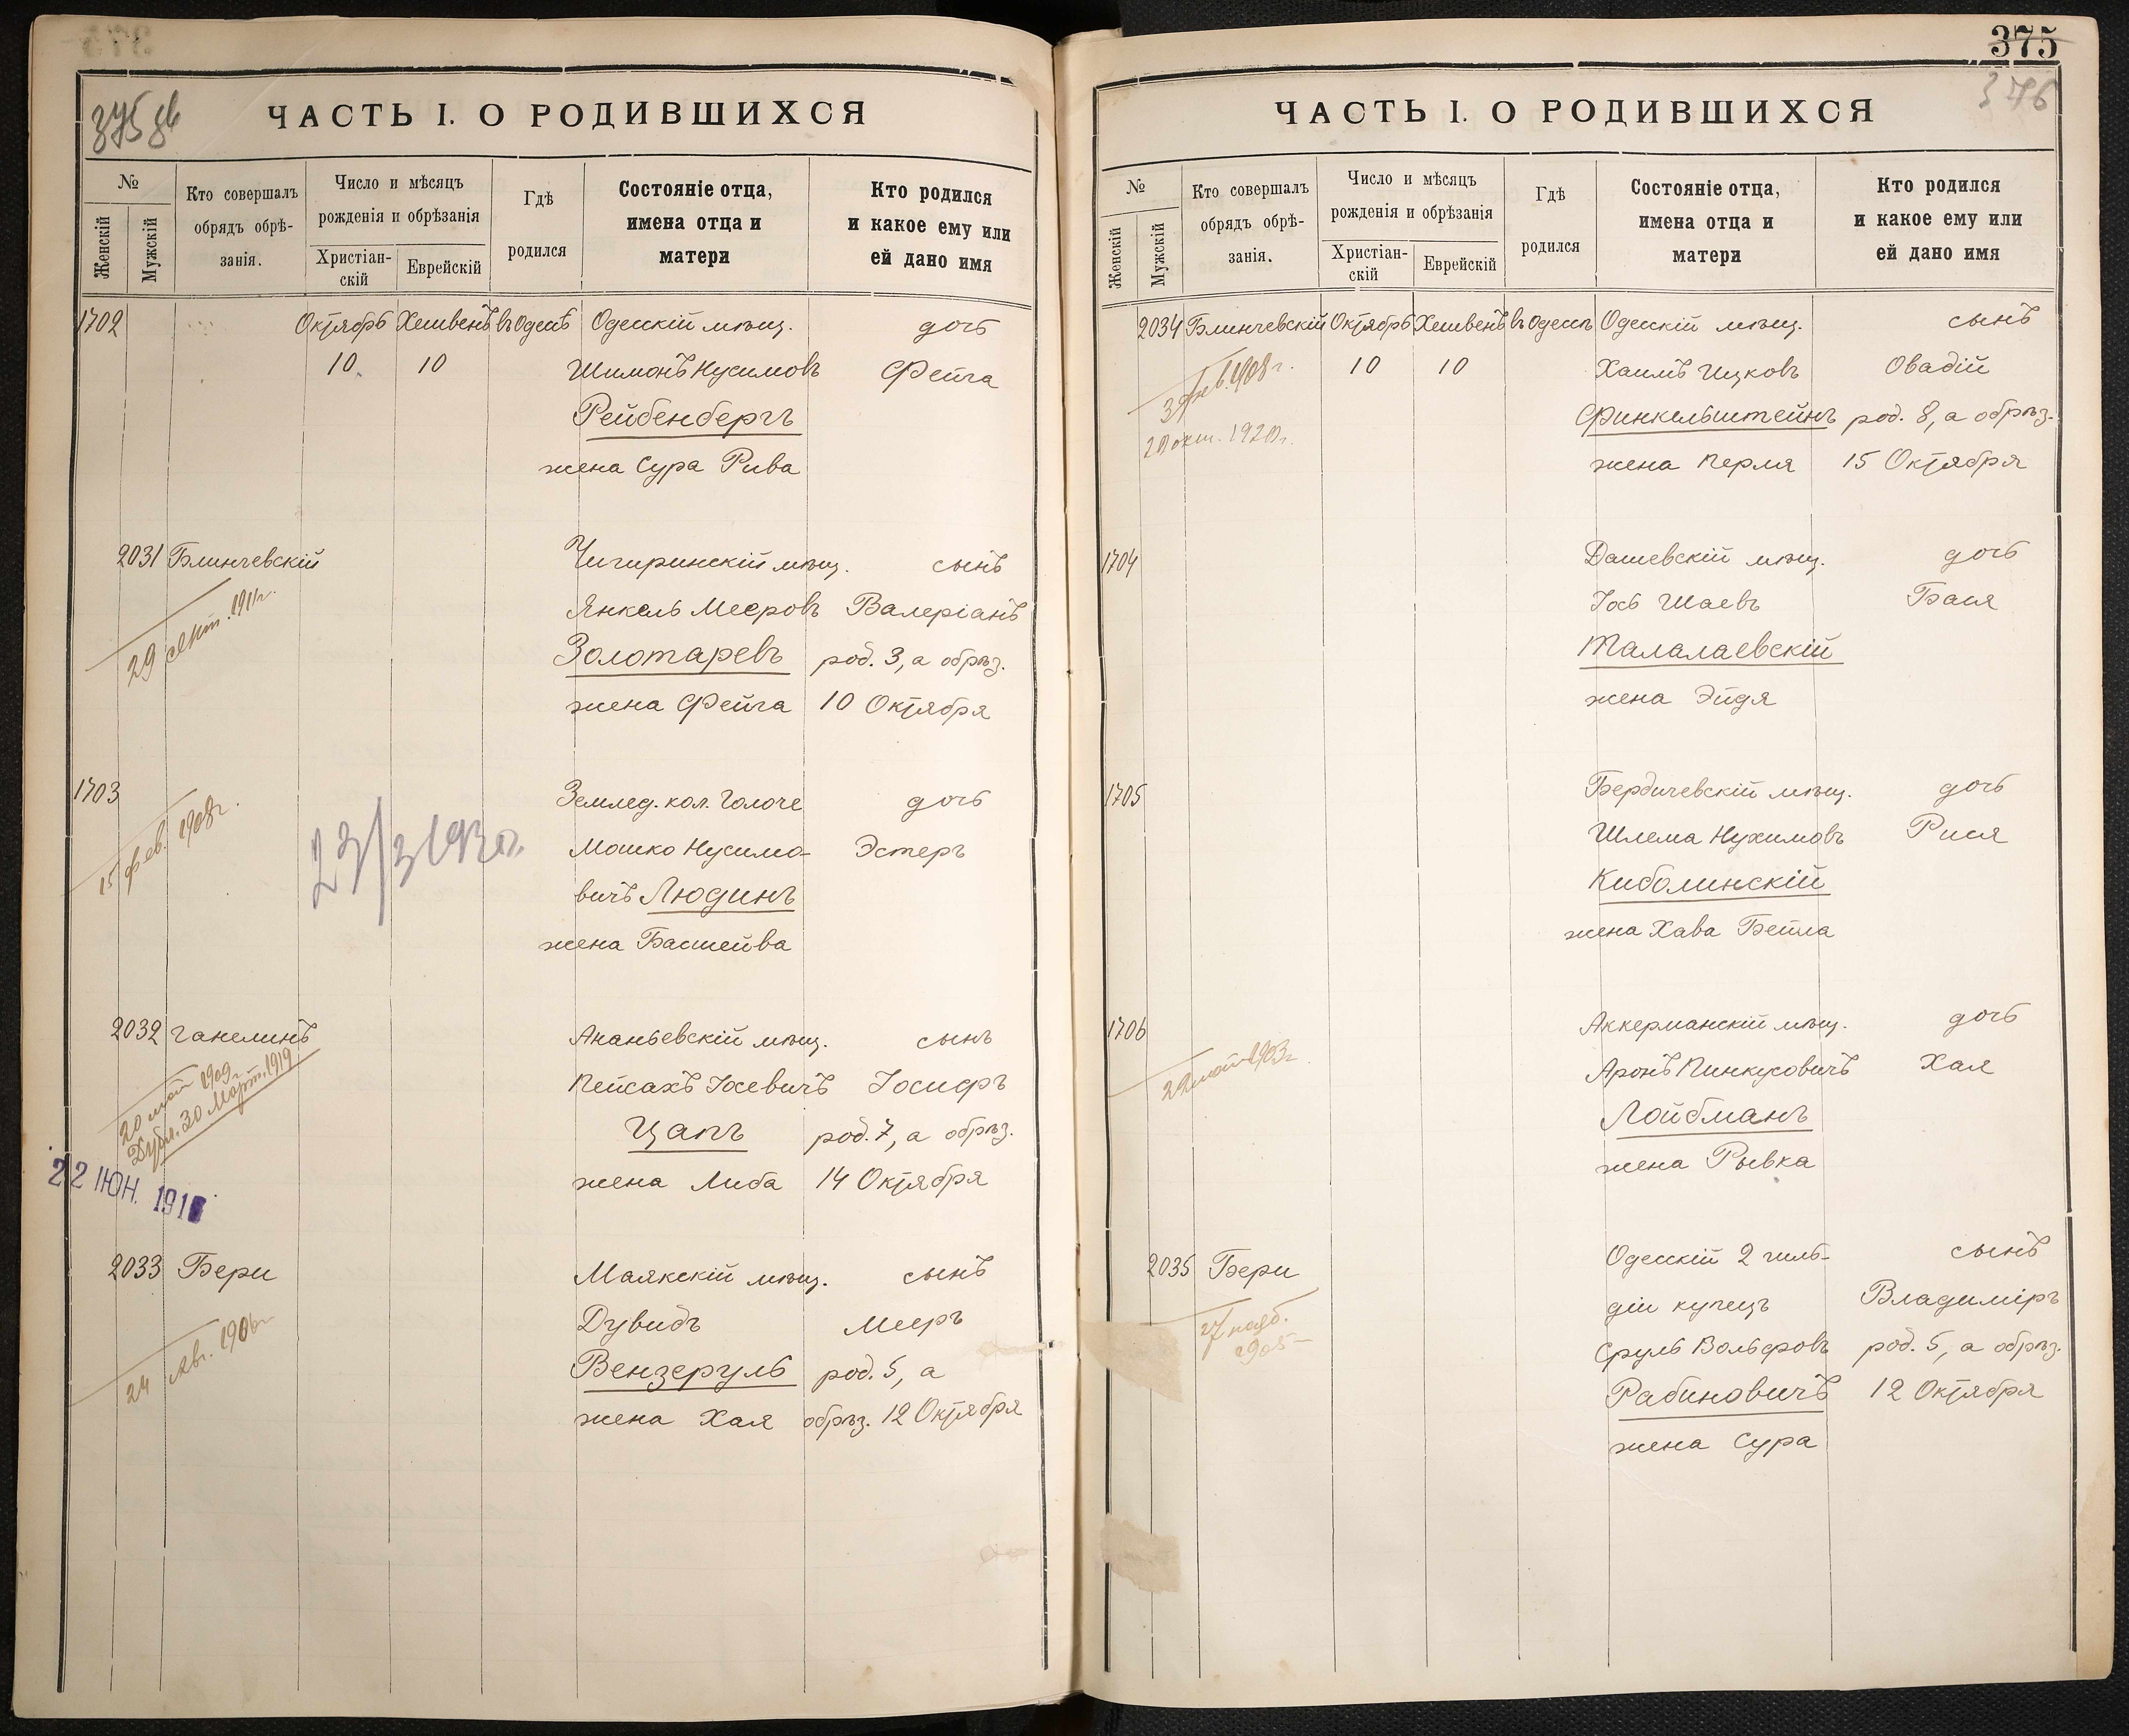 375 об
ЧАСТЬ I. О РОДИВШИХСЯ
№
Женскій
Мужскій
Кто совершалъ
обрядъ обрѣ-
занія.
Число и мѣсяцъ
рожденія и обрѣзанія
Христіан-
скій
Еврейскій
Гдѣ
родился
Состояніе отца,
имена отца и
матери
Кто родился
и какое ему или
ей дано имя
1702 Октябрь Хешвенъ въ Одессѣ Одесскій мѣщ. дочь
10 10 Шимонъ Нусимовъ Фейга
Рейбенбергъ
жена Сура Рива
2031 Блинчевскій Чигиринскій мѣщ. сынъ
29 сент. 1911г. Янкель Мееровъ Валеріанъ
Золотаревъ род. 3, а обрѣз.
жена Фейга 10 Октября
1703 Землед. кол. дочь
15 фев. 1908г. Мошко Нусимо- Эстеръ
23/3 1930г.
вичъ Людинъ
жена Басшейва
2032 Ганелинъ Ананьевскій мѣщ. сынъ
20 май 1909г. Пейсахъ Іосевичъ Іосифъ
Дубл. 30 Март. 1919
Цапъ род. 7, а обрѣз.
жена Либа 14 Октября
22 ІЮН. 191
2033 Бери Маякскій мѣщ. сынъ
Дувидъ Мееръ
24 Авг. 1906г. Вензеруль род. 5, а
жена Хая обрѣз. 12 Октября
375
376
ЧАСТЬ I. О РОДИВШИХСЯ
№
Женскій
Мужскій
Кто совершалъ
обрядъ обрѣ-
занія.
Число и мѣсяцъ
рожденія и обрѣзанія
Христіан-
скій
Еврейскій
Гдѣ
родился
Состояніе отца,
имена отца и
матери
Кто родился
и какое ему или
ей дано имя
2034 Блинчевскій Октябрь Хешвенъ въ Одессѣ Одесскій мѣщ. сынъ
фев. 1908г. 10 10 Хаимъ Ицковъ Овадій
Финкельштейнъ род. 8, а обрѣз.
20 окт. 1920г.
жена Перля 15 Октября
1704 Дашевскій мѣщ. дочь
Іось Шаевъ Бася
Талалаевскій
жена Эйдя
1705 Бердичевскій мѣщ. дочь
Шлема Нухимовъ Рися
Киболинскій
жена Хава Бейла
1706 Аккерманскій мѣщ. дочь
Аронъ Пинкусовичъ Хая
Лойбманъ
жена Рывка
2035 Бери Одесскій 2 гиль- сынъ
діи купецъ Владиміръ
27 нояб.
1905 Сруль Вольфовъ род. 5, а обрѣз.
Рабиновичъ 12 Октября
жена Сура